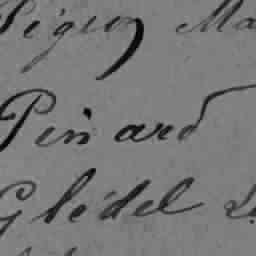 Pigeon Ma
Pinard
Glédel L